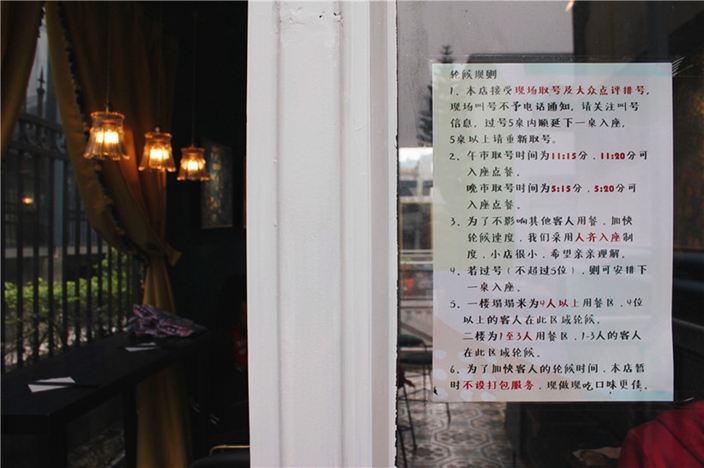 轮候规则
1、本店接受现场取号及大众点评排号，
现场叫号不予电话通知，请关注叫号
信息，过号5桌内顺延下一桌入座，
5桌以上请重新取号。
2、午市取号时间为11:15分，11:20分可
入座点餐。
晚市取号时间为5:15分，5:20分可
入座点餐。
3、为了不影响其他客人用餐，加快
轮候速度，我们采用人齐入座制
度，小店很小，希望亲亲理解。
4、若过号（不超过5位），则可安排下
一桌入座。
5、一楼塌塌米为4人以上用餐区，4位
以上的客人在此区域轮候。
二楼为1至3人用餐区，1-3人的客人
在此区域轮候。
6、为了加快客人的轮候时间，本店暂
时不设打包服务，现做现吃口味更佳。